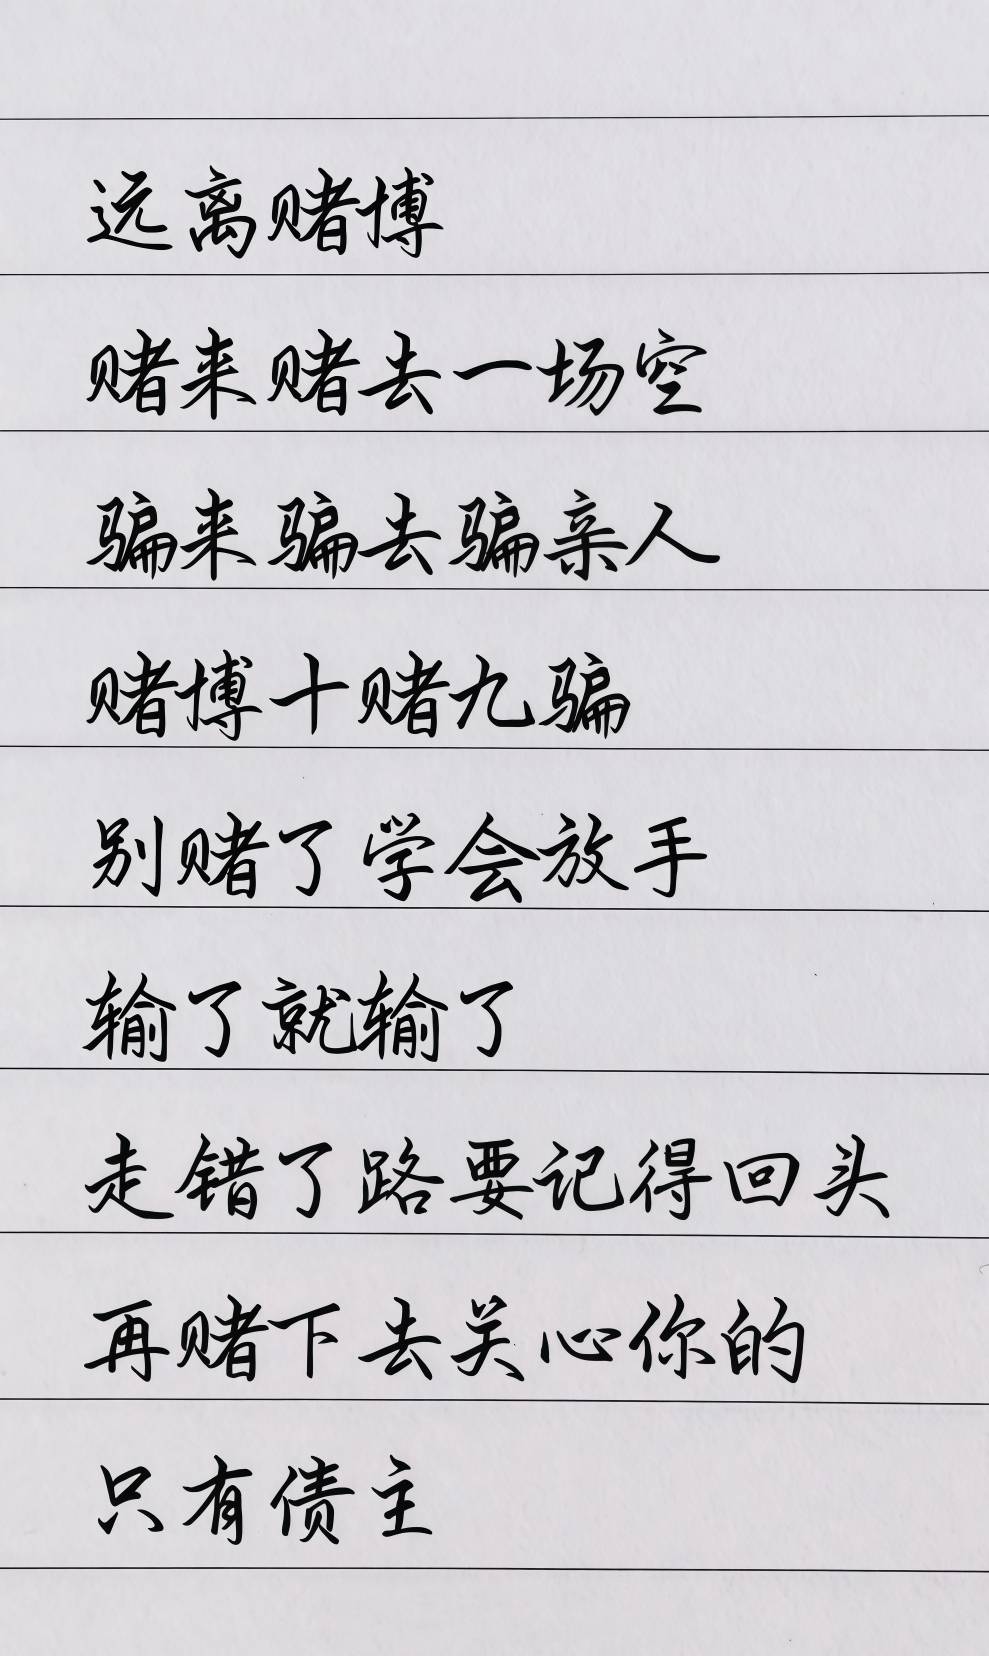 远离赌博
赌来赌去一场空
骗来骗去骗亲人
赌博十赌九骗
别赌了学会放手
输了就输了
走错了路要记得回头
再赌下去关心你的
只有债主